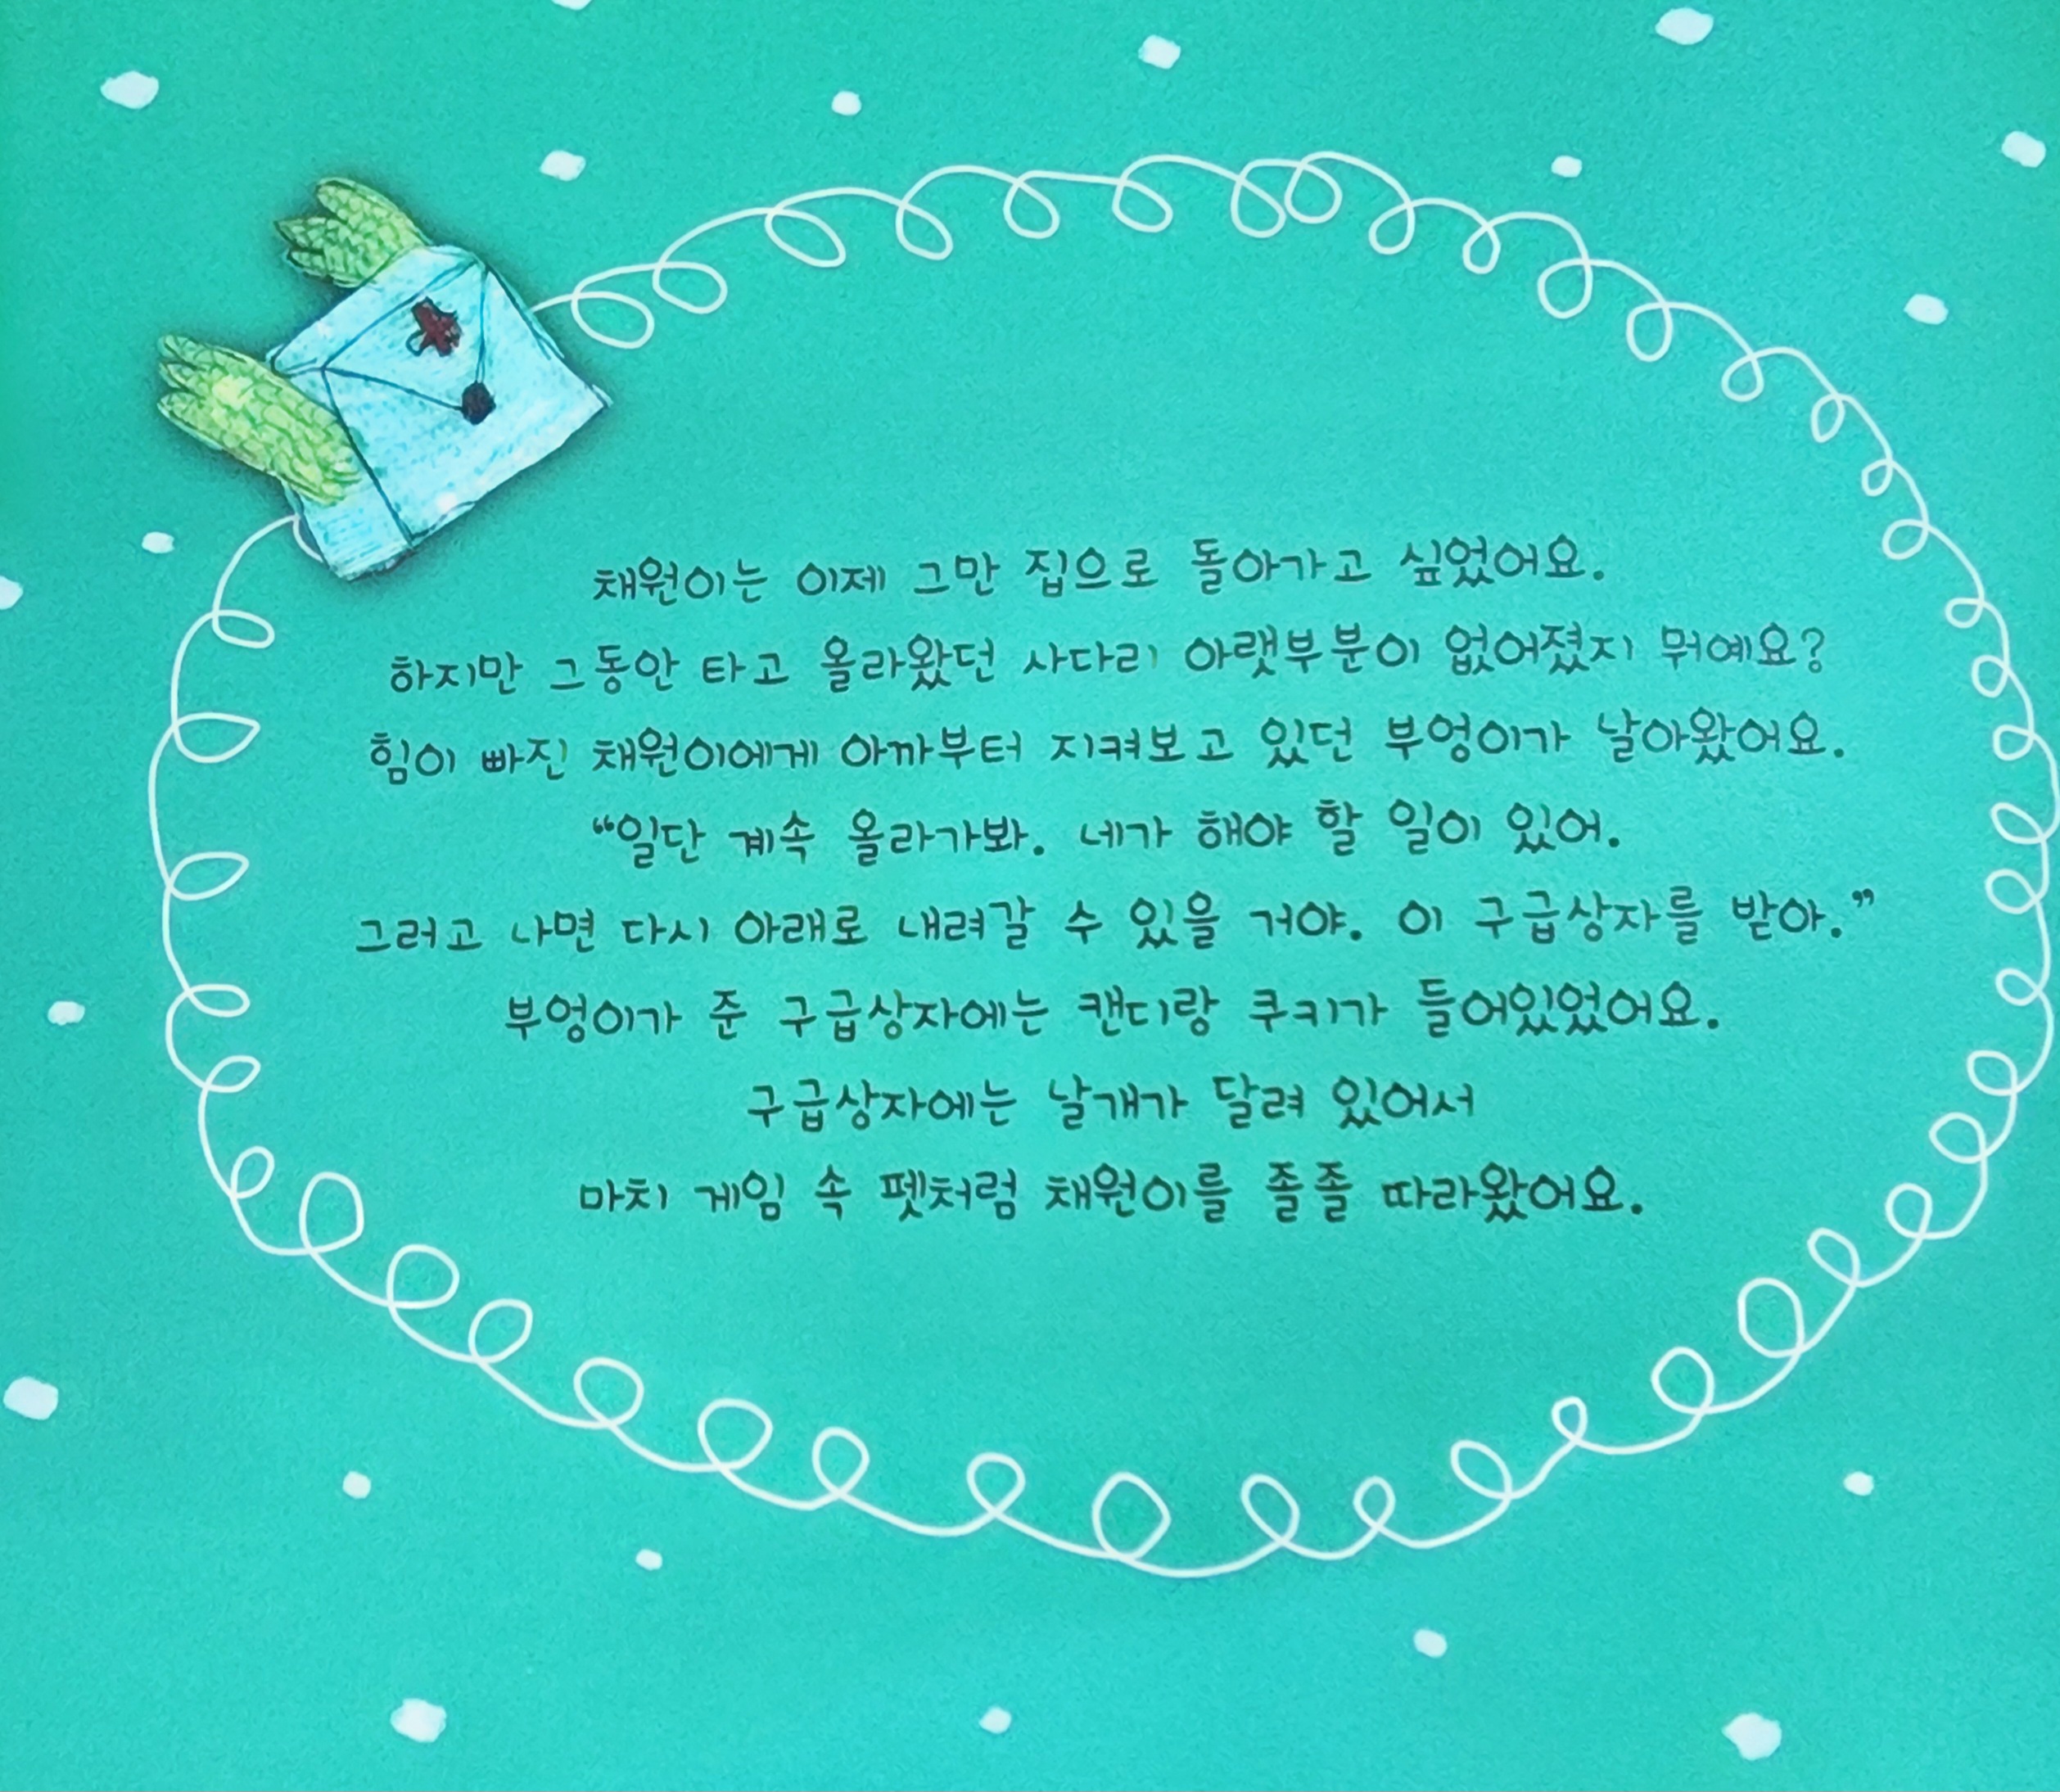 채원이는 이제 그만 집으로 돌아가고 싶었어요.
하지만 그동안 타고 올라왔던 사다리 아랫부분이 없어졌지 뭐예요?
힘이 빠진 채원이에게 아까부터 지켜보고 있던 부엉이가 날아왔어요.
“일단 계속 올라가봐. 네가 해야 할 일이 있어.
그러고 나면 다시 아래로 내려갈 수 있을 거야. 이 구급상자를 받아.”
부엉이가 준 구급상자에는 캔디랑 쿠키가 들어있었어요.
구급상자에는 날개가 달려 있어서
마치 게임 속 펫처럼 채원이를 졸졸 따라왔어요.